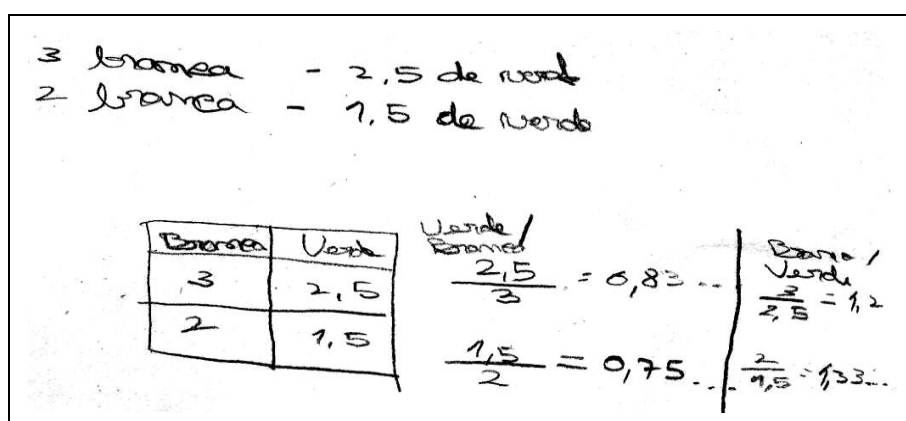 3 branca - 2,5 de verde
2 branca - 1,5 de verde
Branca Verde
3 2,5
2 1,5
Verde /
Branca
2,5/3 = 0,83...
1,5/2 = 0,75...
Branca /
Verde
3/2,5 = 1,2
2/1,5 = 1,33...